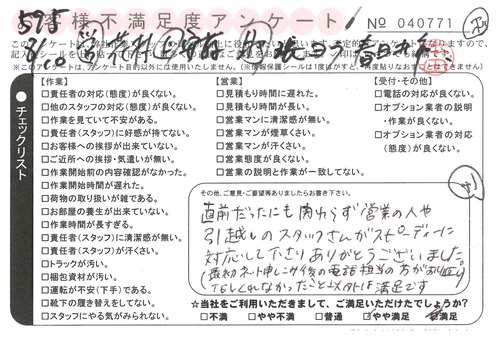 お客様不満足度アンケート
No 040771
【作業】
□責任者の対応(態度)が良くない。
□他のスタッフの対応(態度)が良くない。
□作業を見ていて不安がある。
□責任者(スタッフ)に好感が持てない。
□お客様への挨拶が出来ていない。
□ご近所への挨拶・気遣いが無い。
□作業開始前の内容確認がなかった。
□作業開始時間が遅れた。
□荷物の取り扱いが雑である。
□お部屋の養生が出来ていない。
□作業時間が長すぎる。
□責任者(スタッフ)に清潔感が無い。
□責任者(スタッフ)が汗くさい。
□トラックが汚い。
□梱包資材が汚い。
□運転が不安(下手)である。
□靴下の履き替えをしてない。
□スタッフにやる気がみられない。
【営業】
□見積もり時間に遅れた。
□見積もり時間が長い。
□営業マンに清潔感が無い。
□営業マンが煙草くさい。
□営業マンが汗くさい。
□営業態度が良くない。
□営業の説明と作業が一致してない。
【受付・その他】
□電話の対応が良くない。
□オプション業者の説明
・作業が良くない。
□オプション業者の対応
(態度)が良くない。
●チェックリスト
その他、ご意見・ご要望等ありましたらお書き下さい。
直前だったにも関わらず営業の人や
引越しのスタッフさんがスピーディーに
対応して下さりありがとうございました
(最初ネット申し込み後の電話担当の方が
してくれなかったこと以外は満足です
☆当社をご利用いただきまして、ご満足いただけたでしょうか?
□不満 □やや不満 □普通 □やや満足 □満足